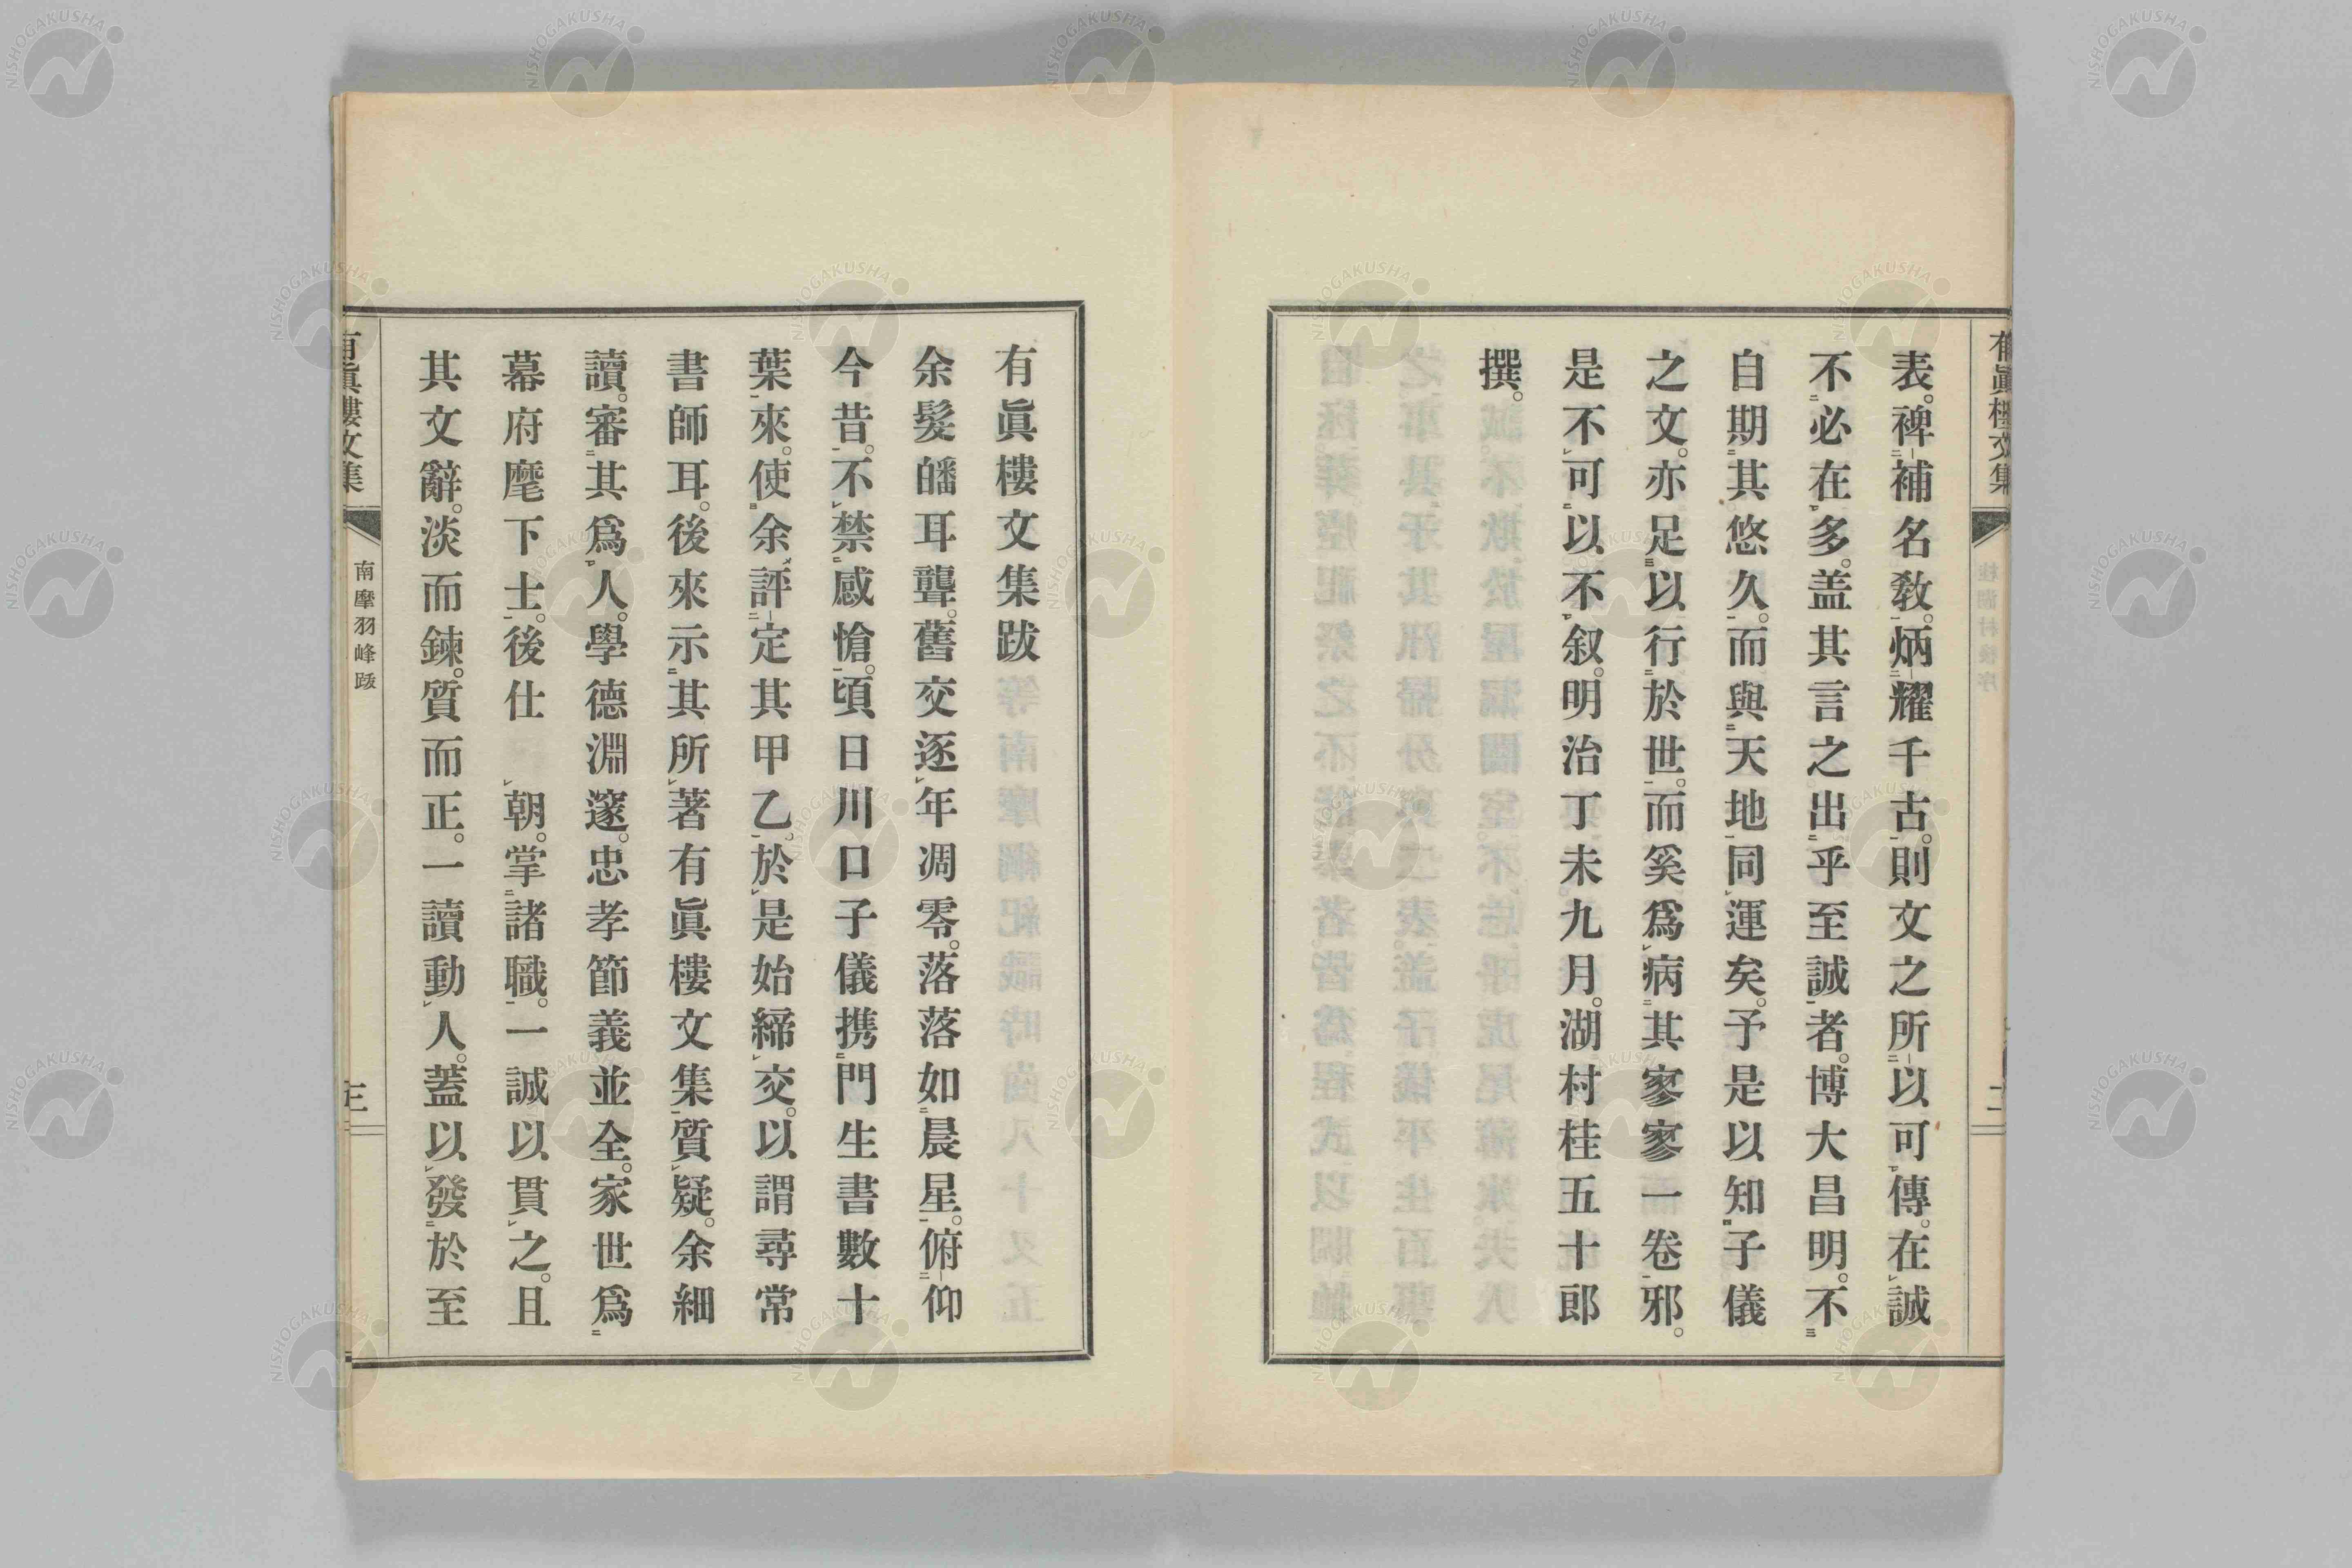 表。裨補名敎。炳耀千古。則文之所以可傳。在誠
不必在多。盖其言之出乎至誠者。博大昌明。不
自期其悠久。而與天地同運矣。予是以知子儀
之文。亦足以行於世。而奚爲病其寥寥一卷邪。
是不可以不叙。明治丁未九月。湖村桂五十郎
撰。
有眞樓文集
二
有眞樓文集跋
余髮皤耳聾。舊交逐年凋零。落落如晨星。俯仰
今昔。不禁感愴。頃日川口子儀携門生書數十
葉來。使余評定其甲乙。於是始締交。以謂尋常
書師耳。後來示其所著有眞樓文集質疑。余細
讀。審其爲人。學德淵邃。忠孝節義並全。家世爲
幕府麾下士。後仕　朝。掌諸職。一誠以貫之。且
其文辭。淡而鍊。質而正。一讀動人。蓋以發於至
有眞樓文集
南摩羽峰跋
三
NISHOGAKUSHA